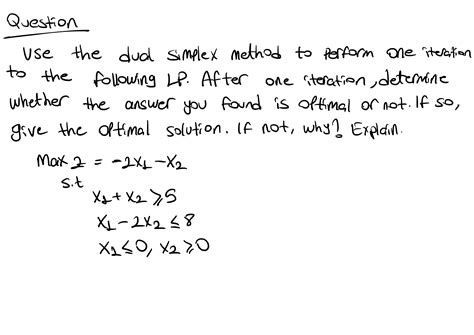 Question
Use the dual simplex method to perform one iteration
to the following LP. After one iteration, determine
whether the answer you found is optimal or not. If so,
give the optimal solution. If not, why? Explain.
Max z = -2x₁ - x₂
s.t
x₁ + x₂ ⩾ 5
x₁ - 2x₂ ≤ 8
x₁ ≤ 0, x₂ ⩾ 0